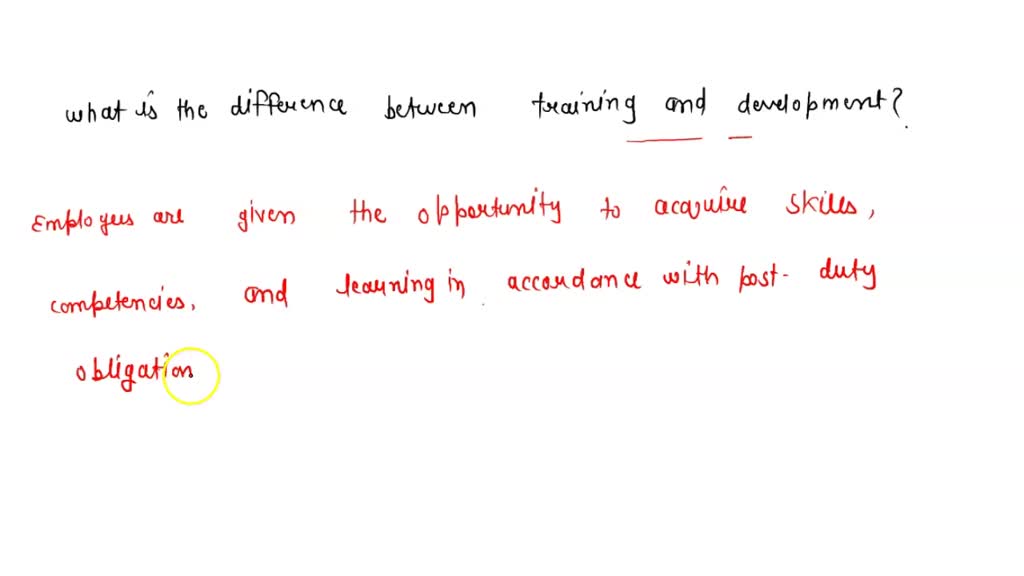 what is the difference between training and development?
Employees are given the opportunity to acquire skills,
competencies, and learning in accordance with post-duty
obligation